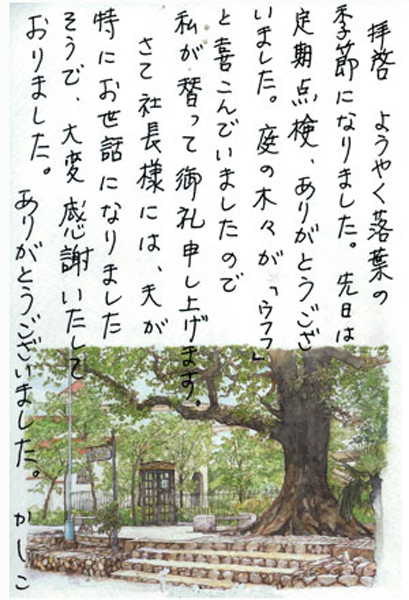 拝啓　ようやく落葉の
季節になりました。先日は
定期点検、ありがとうござ
いました。庭の木々が「ウフフ」
と喜こんでいましたので
私が替って御礼申し上げます。
さて社長様には、夫が
特にお世話になりました
そうで、大変感謝いたして
おりました。ありがとうございました。かしこ